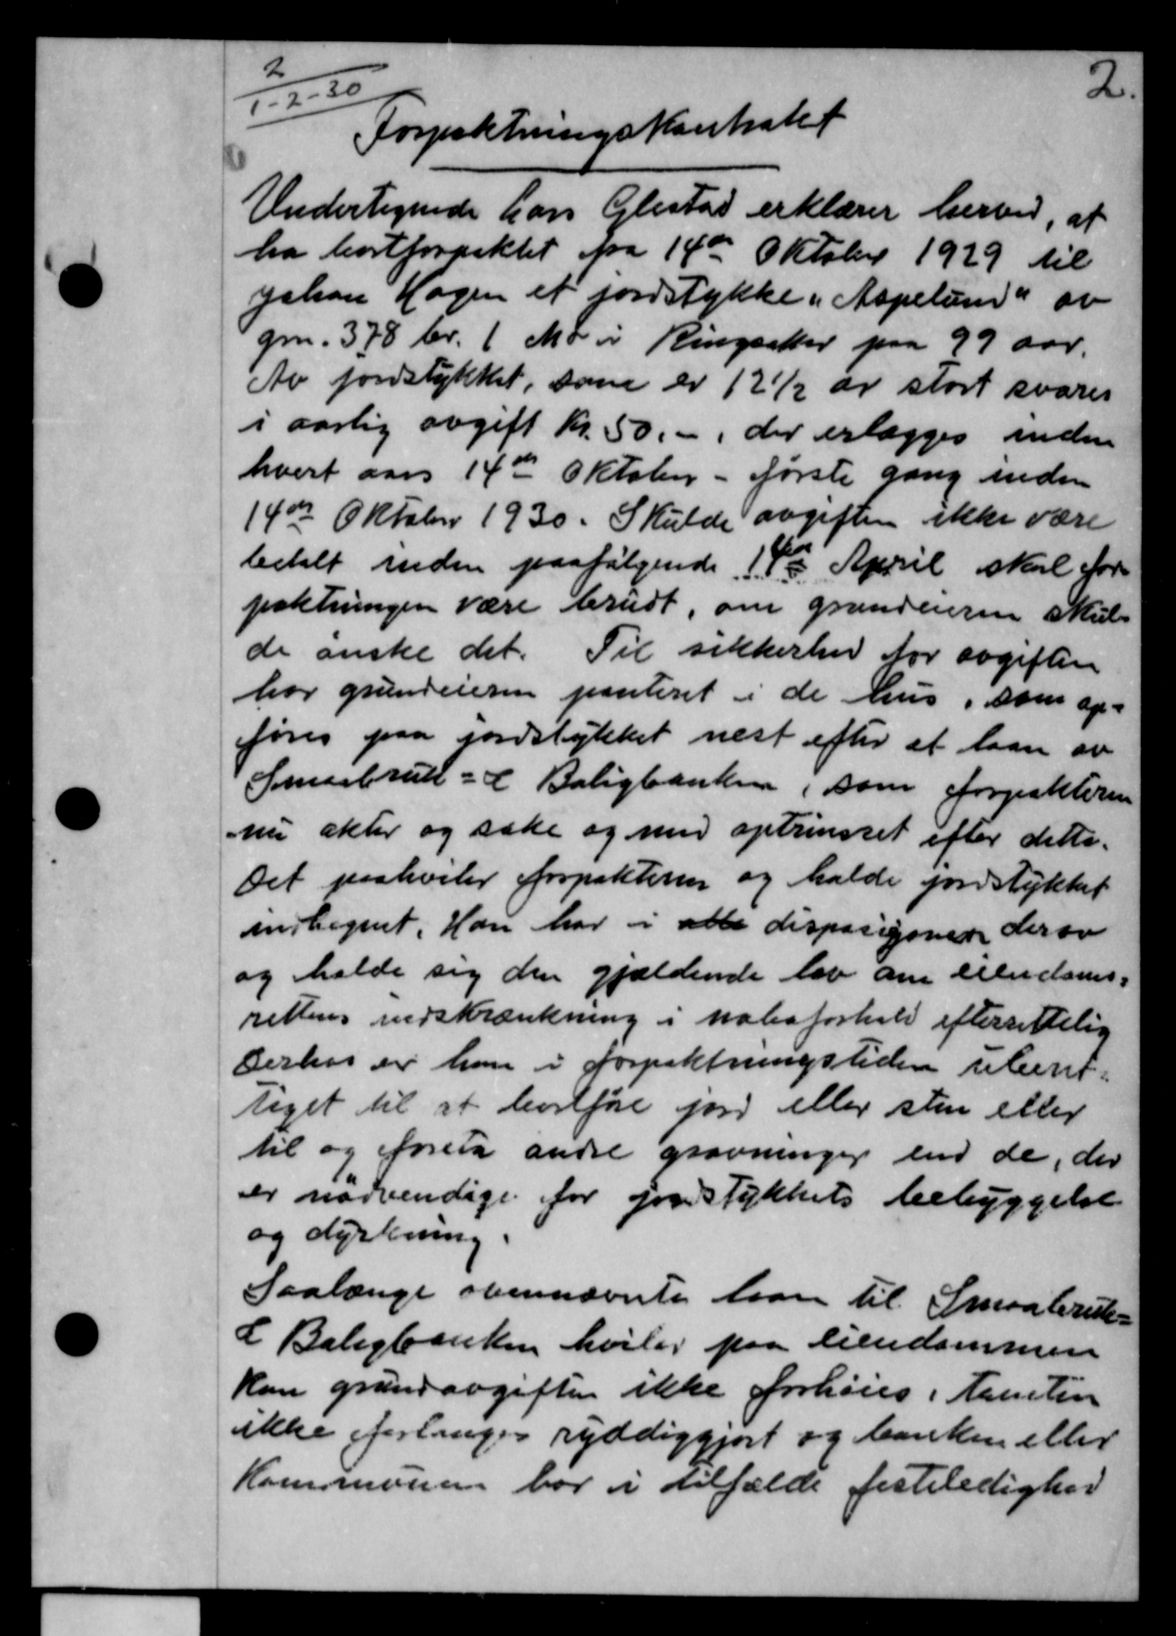 2
1-2-30
2.
Forpaktningskontrakt
Undertegnede Lars Glestad erklærer herved, at
ha bortforpaktet fra 14de Oktober 1929 til
Johan Hagen et jordstykke "Aspelund" av
grn. 378 br. 1 Mo i Ringsaker paa 99 aar.
Av jordstykket, som er 12 1/2 ar stort svares
i aarlig avgift Kr. 50.-, der erlægges inden
hvert aars 14de Oktober - første gang inden
14de Oktober 1930. Skulde avgiften ikke være
betalt inden paafølgende 14de April skal for
paktningen være brudt, om grundeieren skul-
de ønske det. Til sikkerhet for avgiften
har grundeieren panteret i de hus, som op-
føres paa jordstykket nest efter et laan av
Smaabruk- & Boligbanken, som forpakteren
nu akter og søke og med optrinsret efter dette.
Det paahviler forpakteren og holde jordstykket
indhegnet. Han har i alle disposisjoner derav
og holde sig den gjældende lov om eiendoms-
rettens indskrænkning i naboforhold efterrettelig
Derhos er han i forpaktningstiden uberet-
tiget til at bortføre jord eller sten eller
til og foreta andre gravninger end de, der
er nødvendige for jordstykkets bebyggelse
og dyrkning.
Saalænge ovennævnte laan til Smaabruk-
& Boligbanken hviler paa eiendommen
kan grundavgiften ikke forhøies, tomten
ikke forlanges ryddiggjort og banken eller
Kommunen har i tilfælde festeledighed